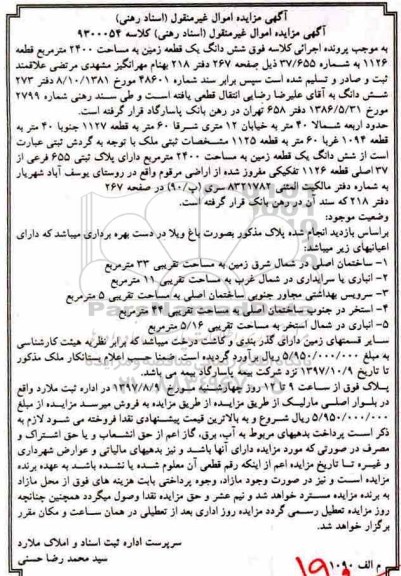 آگهی مزایده اموال غیرمنقول (اسناد رهنی)
آگهی مزایده اموال غیرمنقول (اسناد رهنی) کلاسه ۹۳۰۰۰۵۴
به موجب پرونده اجرائی کلاسه فوق شش دانگ یک قطعه زمین به مساحت ۲۴۰۰ مترمربع قطعه
۱۱۲۶ به شماره ۳۷/۶۵۵ ذیل صفحه ۲۶۷ دفتر ۲۱۸ بهنام مهرانگیز مشهدی مرتضی علاقمند
ثبت و صادر و تسلیم شده است سپس برابر سند شماره ۴۸۶۰۱ مورخ ۸/۱۰/۱۳۸۱ دفتر ۲۷۳
شش دانگ به آقای علیرضا رضایی انتقال قطعی یافته است و طی سند رهنی شماره ۲۷۹۹
مورخ ۱۳۸۶/۵/۳۱ دفتر ۶۵۸ تهران در رهن بانک پاسارگاد قرار گرفته است.
حدود اربعه شمالا ۴۰ متر به خیابان ۱۲ متری شرقا ۶۰ متر به قطعه ۱۱۲۷ جنوبا ۴۰ متر به
قطعه ۱۰۹۴ غربا ۶۰ متر به قطعه ۱۱۲۵ مشخصات ثبتی ملک با توجه به گردش ثبتی عبارت
است از شش دانگ یک قطعه زمین به مساحت ۲۴۰۰ مترمربع دارای پلاک ثبتی ۶۵۵ فرعی از
۳۷ اصلی قطعه ۱۱۲۶ تفکیکی مفروز شده از اراضی مرقوم واقع در روستای یوسف آباد شهریار
به شماره دفتر مالکیت المثنی ۸۳۲۱۷۸۲ سری (پ/۹۰) در صفحه ۲۶۷
دفتر ۲۱۸ که سند آن در رهن بانک قرار گرفته است.
وضعیت موجود:
براساس بازدید انجام شده پلاک مذکور بصورت باغ ویلا در دست بهره برداری میباشد که دارای
اعیانیهای زیر میباشد:
۱- ساختمان اصلی در شمال شرق زمین به مساحت تقریبی ۳۳ مترمربع
۲- انباری یا سرایداری در شمال غرب به مساحت تقریبی ۱۱ مترمربع
۳- سرویس بهداشتی مجاور جنوبی ساختمان اصلی به مساحت تقریبی ۵ مترمربع
۴- استخر در جنوب ساختمان اصلی به مساحت تقریبی ۴۲ مترمربع
۵- انباری در شمال استخر به مساحت تقریبی ۵/۱۶ مترمربع
سایر قسمتهای زمین دارای گذر بندی و کاشت درخت میباشد که برابر نظریه هیئت کارشناسی
به مبلغ ۵/۹۵۰/۰۰۰/۰۰۰ ریال برآورد گردیده است. ضمنا حسب اعلام بستانکار ملک مذکور
تا تاریخ ۱۳۹۷/۱۰/۹ نزد شرکت بیمه پاسارگاد بیمه می باشد.
پلاک فوق از ساعت ۹ تا ۱۲ روز چهارشنبه مورخ ۱۳۹۷/۸/۹ در اداره ثبت ملارد واقع
در بلوار اصلی مارلیک از طریق مزایده از طریق مزایده به فروش میرسد مزایده از مبلغ
۵/۹۵۰/۰۰۰/۰۰۰ ریال شروع و به بالاترین قیمت پیشنهادی نقدا فروخته می شود لازم به
ذکر است پرداخت بدهیهای مربوط به آب، برق، گاز اعم از حق انشعاب و یا حق اشتراک و
مصرف در صورتی که مورد مزایده دارای آنها باشد و نیز بدهیهای مالیاتی و عوارض شهرداری
و غیره تا تاریخ مزایده اعم از اینکه رقم قطعی آن معلوم شده یا نشده باشد به عهده برنده
مزایده است و نیز در صورت وجود مازاد، وجوه پرداختی بابت هزینه های فوق از محل مازاد
به برنده مزایده مسترد خواهد شد و نیم عشر و حق مزایده نقدا وصول میگردد همچنین چنانچه
روز مزایده تعطیل رسمی گردد مزایده روز اداری بعد از تعطیلی در همان ساعت و مکان مقرر
برگزار خواهد شد.
سرپرست اداره ثبت اسناد و املاک ملارد
سید محمد رضا حسنی
م الف ۱۰۹۰